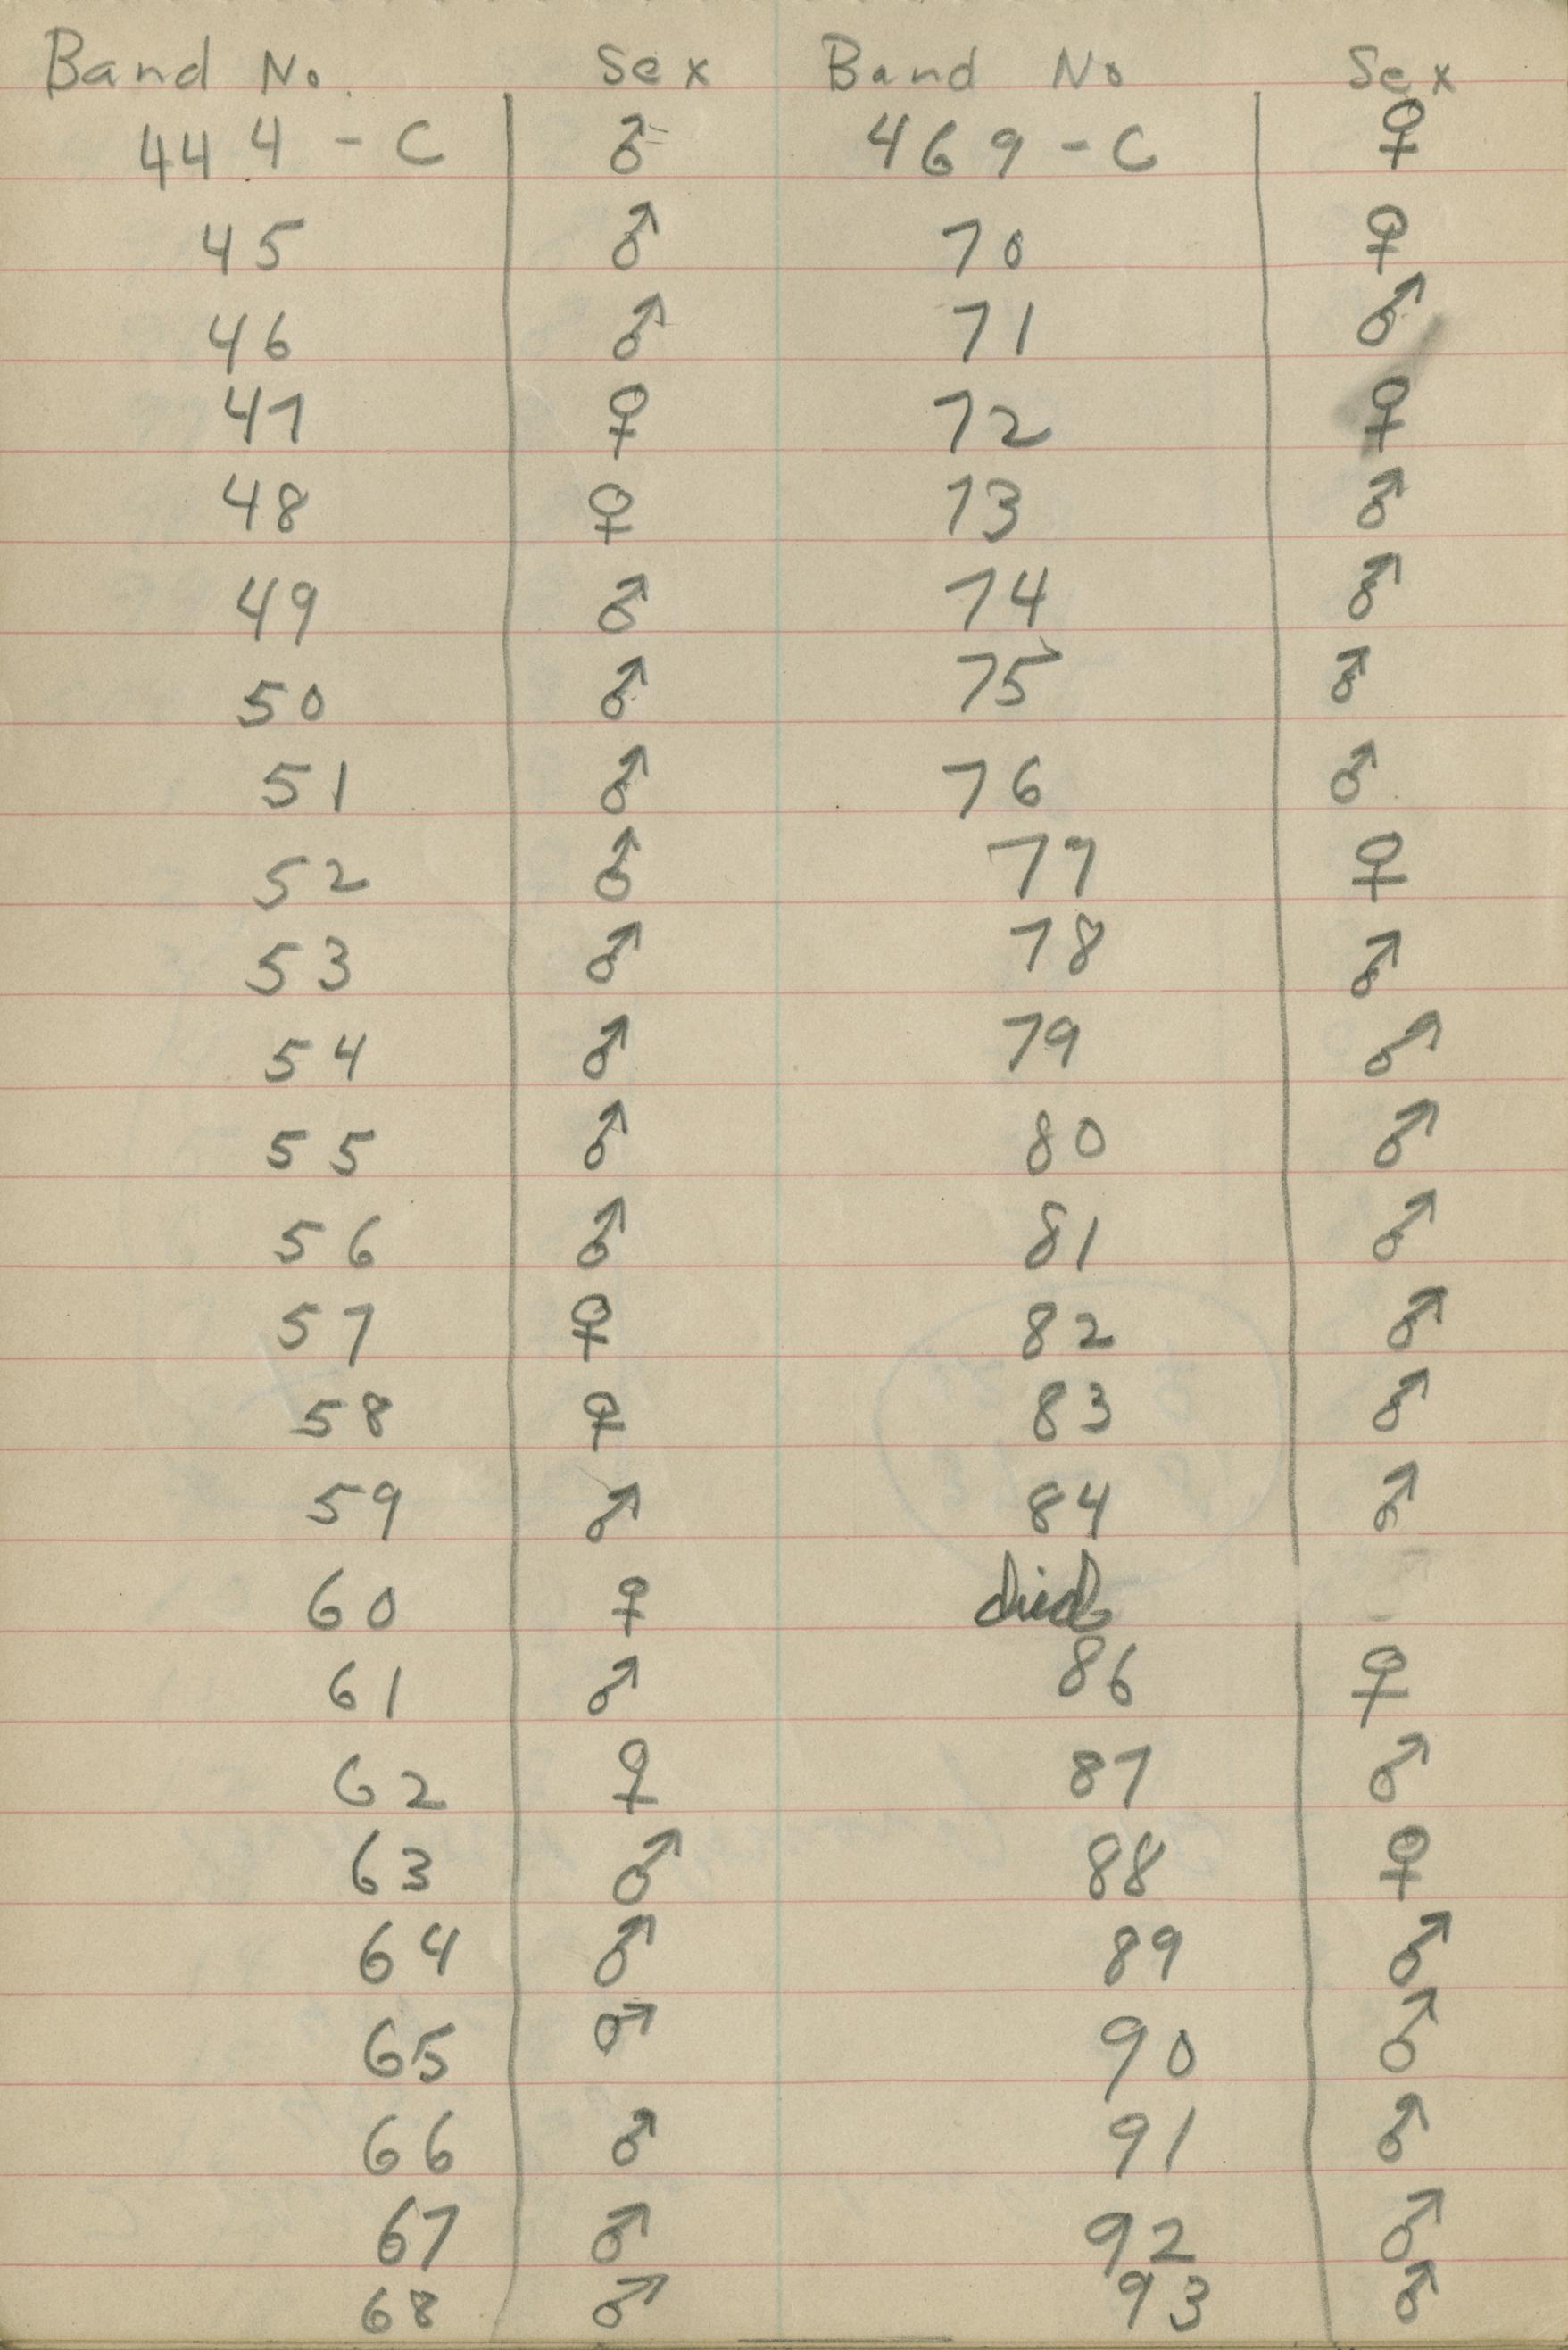 Band No. Sex Band No Sex
444-C ♂ 469-C ♀
45 ♂ 70 ♀
46 ♂ 71 ♂
47 ♀ 72 ♀
48 ♀ 73 ♂
49 ♂ 74 ♂
50 ♂ 75 ♂
51 ♂ 76 ♂
52 ♂ 77 ♀
53 ♂ 78 ♂
54 ♂ 79 ♂
55 ♂ 80 ♂
56 ♂ 81 ♂
57 ♀ 82 ♂
58 ♀ 83 ♂
59 ♂ 84 ♂
60 ♀ died
61 ♂ 86 ♀
62 ♀ 87 ♂
63 ♂ 88 ♀
64 ♂ 89 ♂
65 ♂ 90 ♂
66 ♂ 91 ♂
67 ♂ 92 ♂
68 ♂ 93 ♂